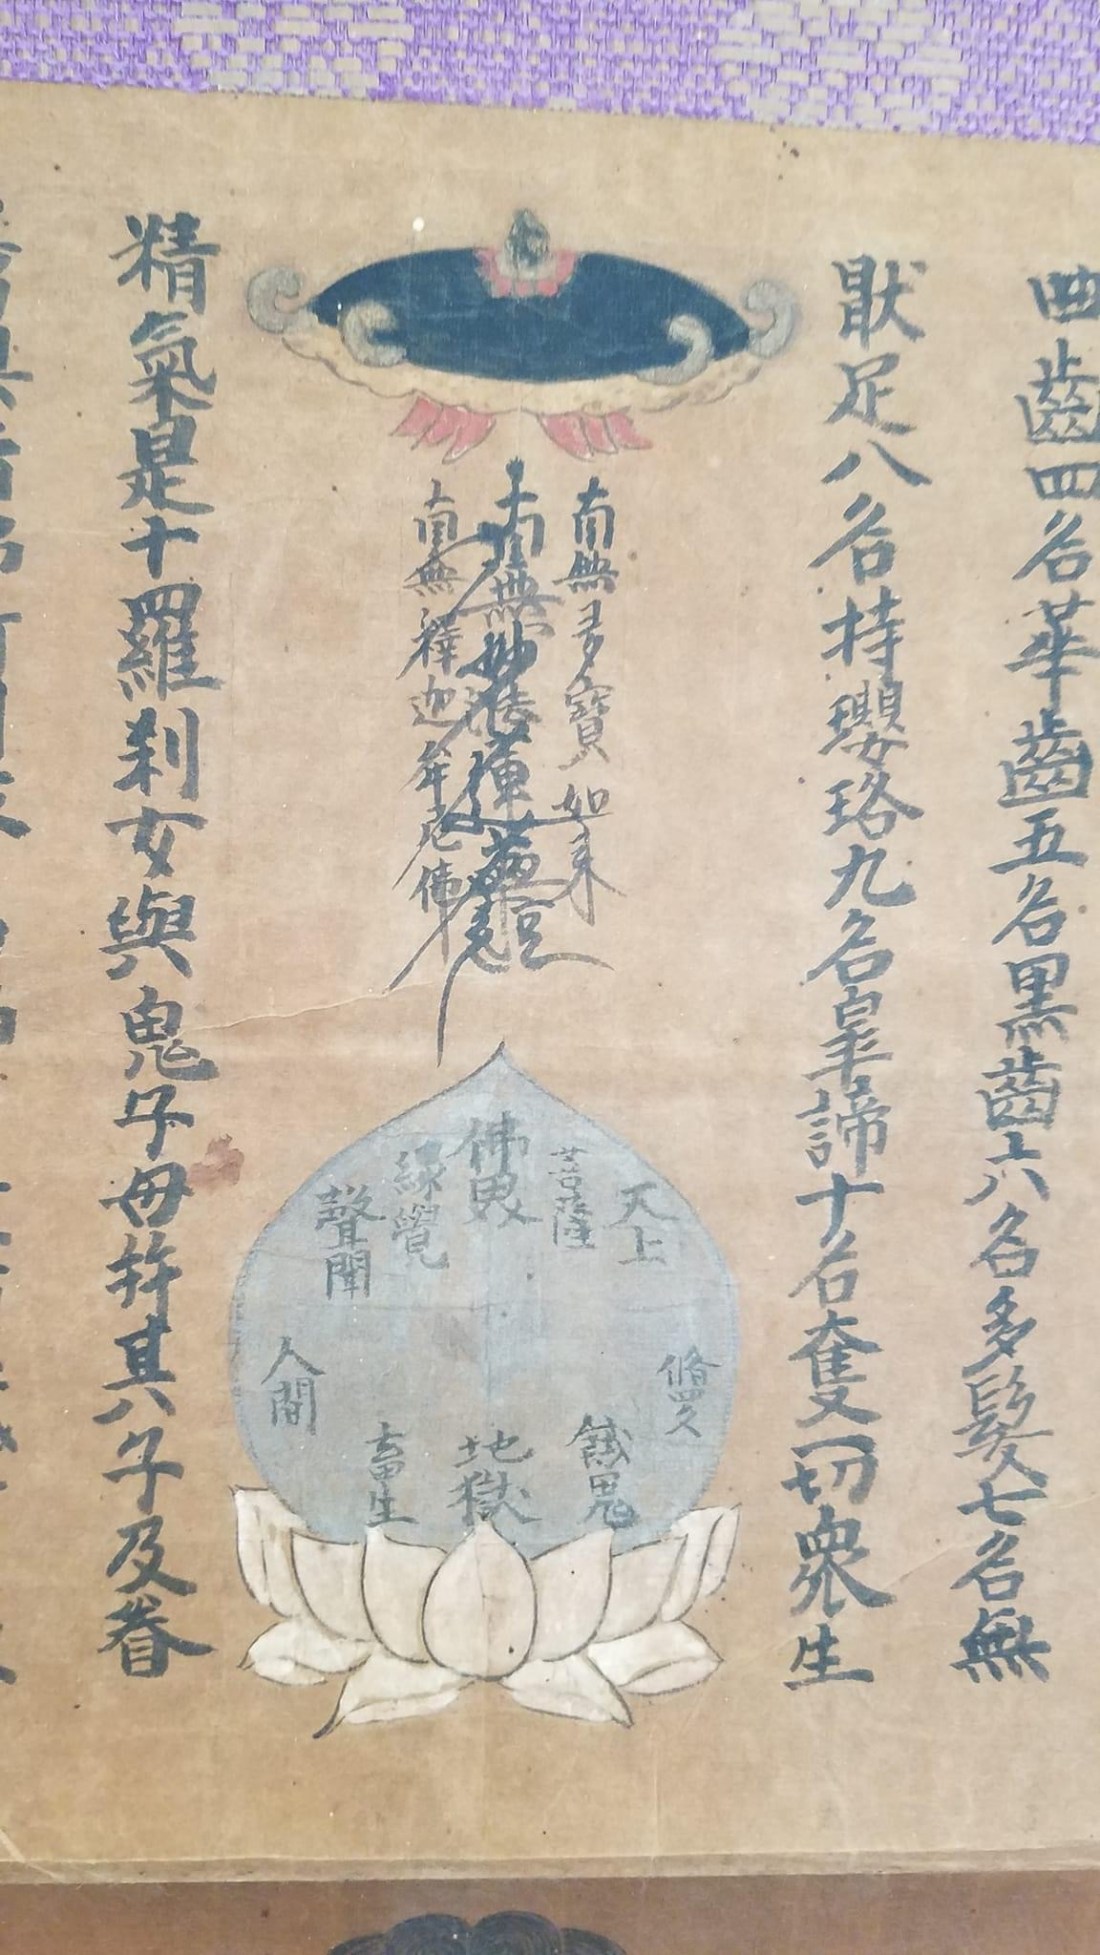 齒四名華齒五名黒齒六名多髮七名無
猒足八名持瓔珞九名皐諦十名奪一切衆生
南無多寶如来
南無妙法蓮華経
南無釋迦牟尼佛
天上
菩薩
佛界
縁覺
聲聞
人間
餓鬼
地獄
畜生
精氣是十羅刹女與鬼子母并其子及眷